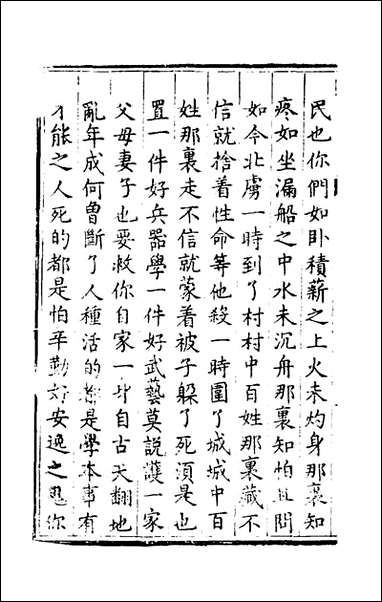 民也你們如卧積薪之上火未灼身那裏知
疼如坐漏船之中水未沉舟那裏知怕且問
如今北虜一時到了村村中百姓那裏藏不
信就捨着性命等他殺一時圍了城城中百
姓那裏走不信就蒙着被子躲了死須是也
置一件好兵器學一件好武藝莫説護一家
父母妻子也要救你自家一身自古天翻地
亂年成何曾斷了人種活的都是學本事有
才能之人死的都是怕辛勤好安逸之愚你